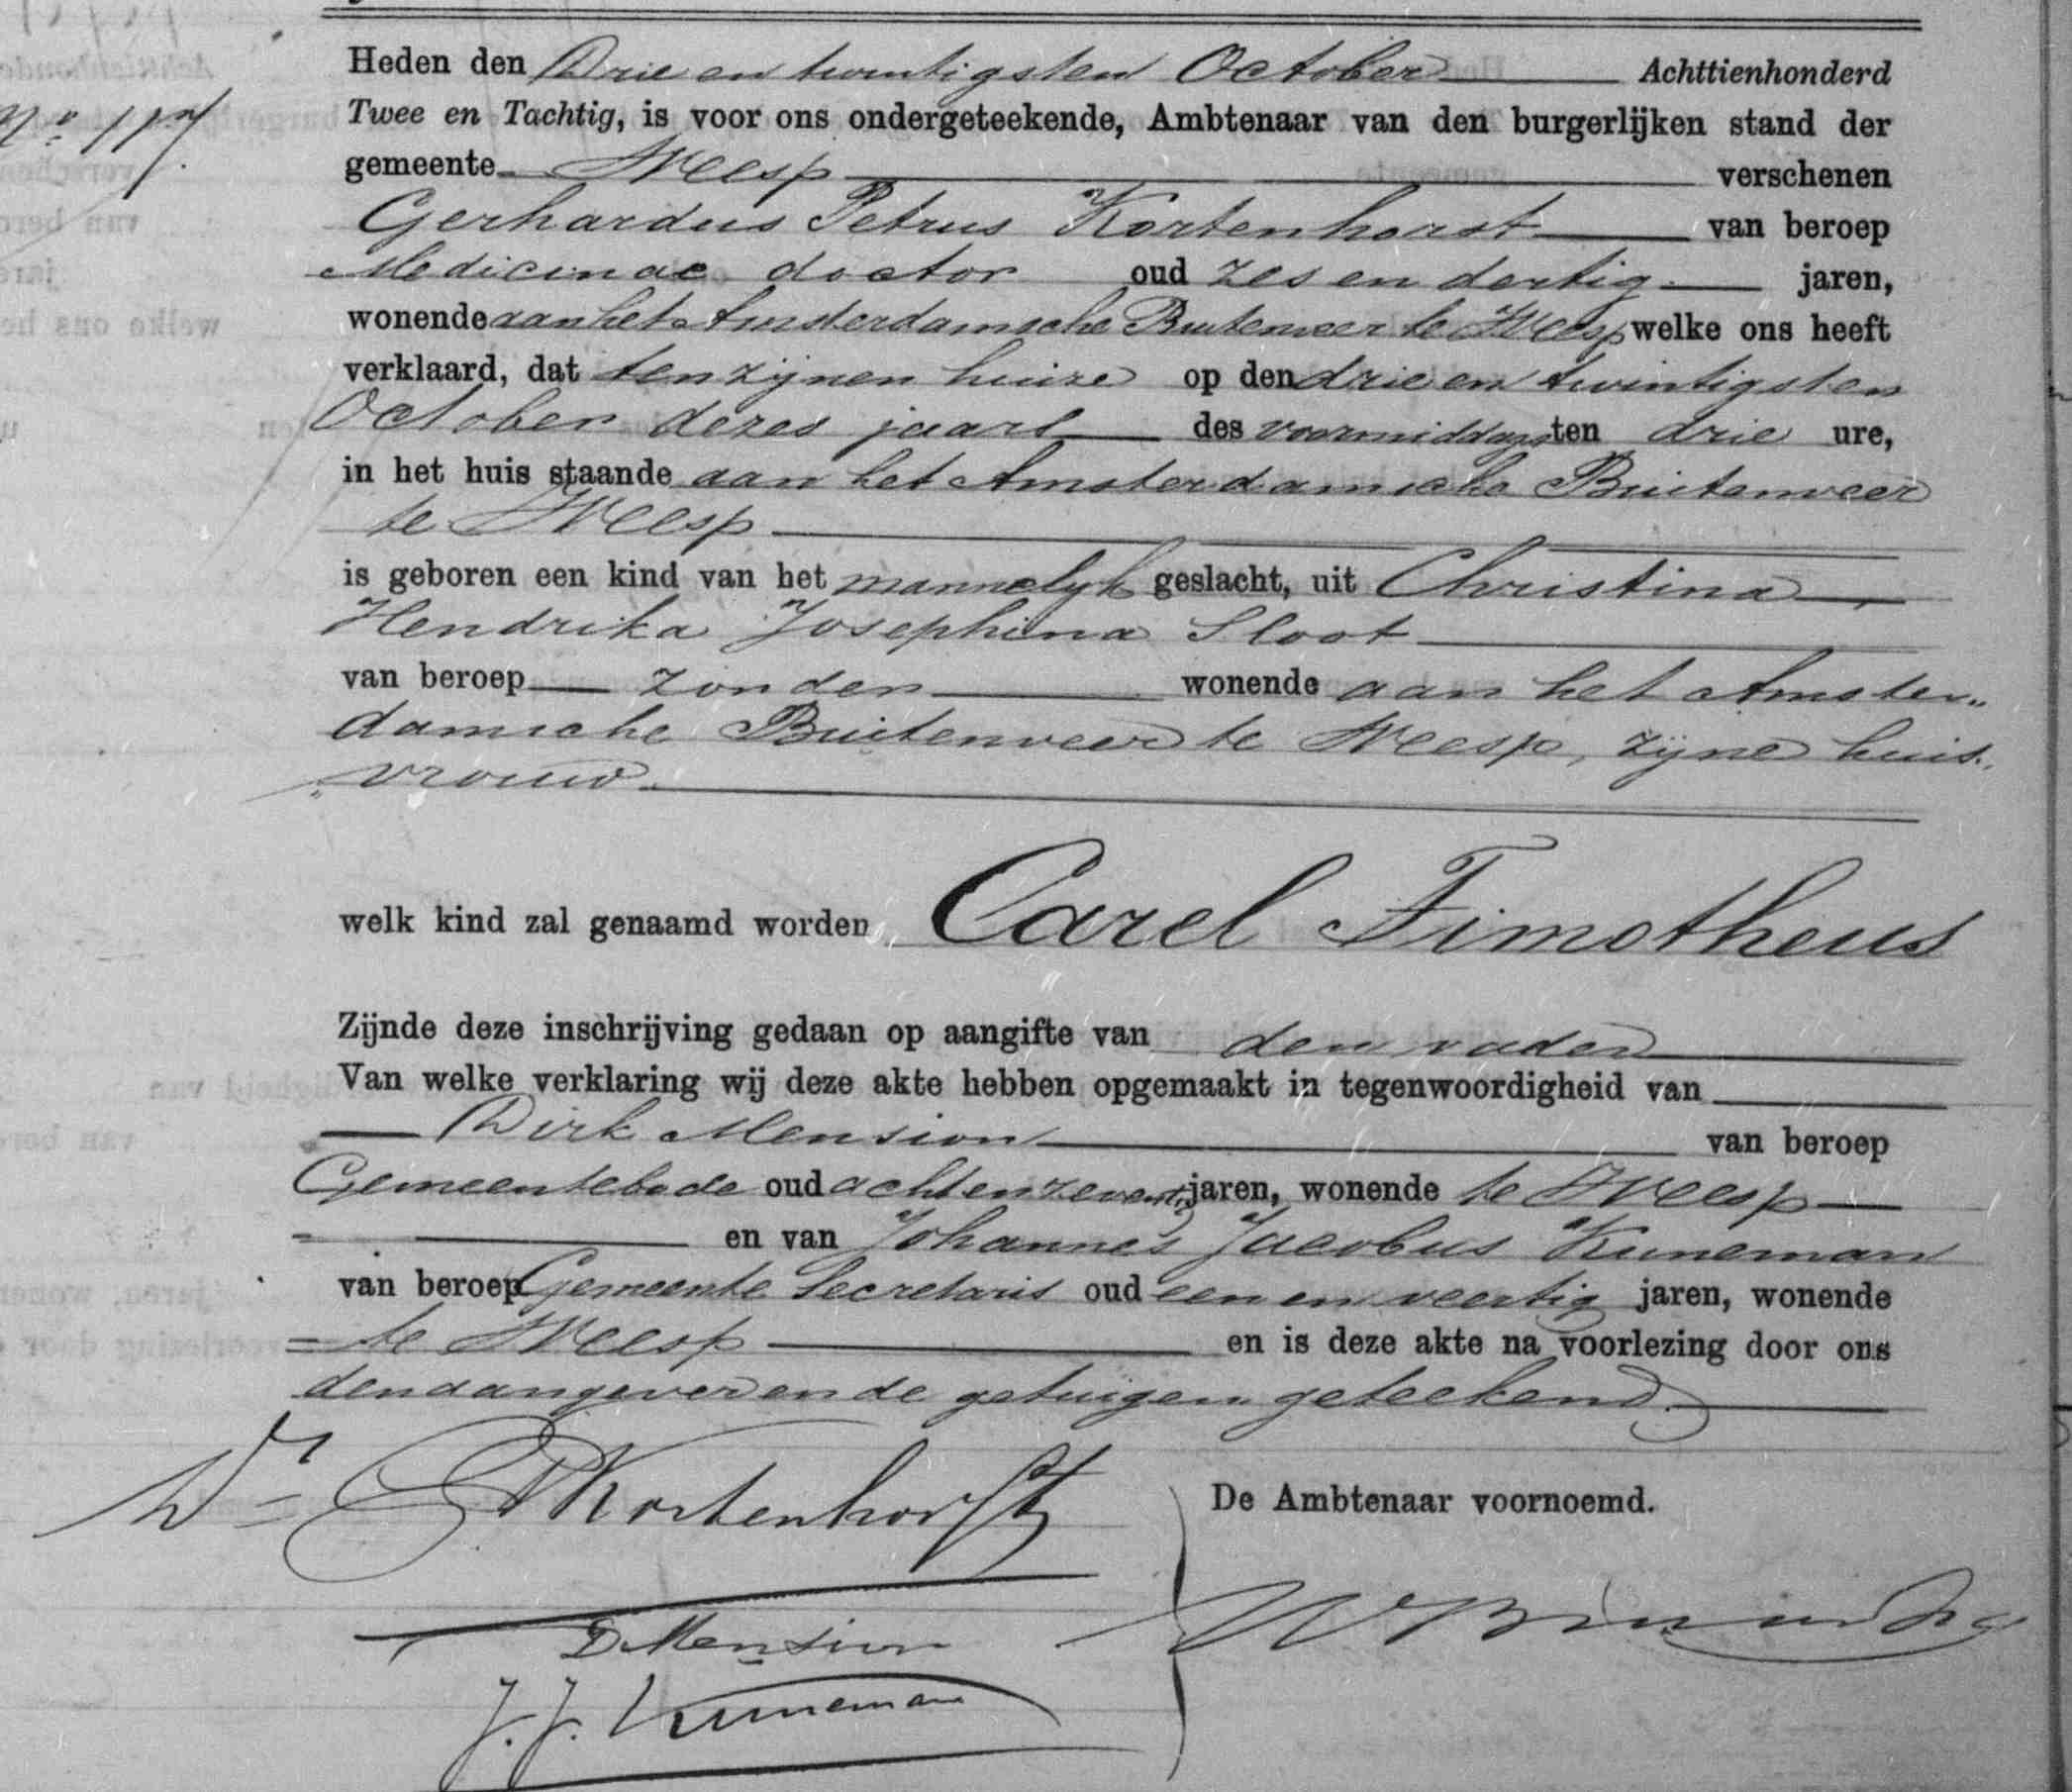 Heden den Drie en twintigsten October Achttienhonderd
No 117.
Twee en Tachtig, is voor ons ondergeteekende, Ambtenaar van den burgerlijken stand der
gemeente Weesp verschenen
Gerhardus Petrus Kortenhorst van beroep
Medicinae doctor oud zes en dertig jaren,
wonende aan het Amsterdamsche Buitenveer te Weesp welke ons heeft
verklaard, dat ten zijnen huize op den drie en twintigsten
October dezes jaars des voormiddags ten drie ure,
in het huis staande aan het Amsterdamsche Buitenveer
te Weesp
is geboren een kind van het mannelyk geslacht, uit Christina
Hendrika Josephina Sloot
van beroep zonder wonende aan het Amster„
damsche Buitenveer te Weesp, zijne huis„
„vrouw
welk kind zal genaamd worden Carel Timotheus
Zijnde deze inschrijving gedaan op aangifte van den vader
Van welke verklaring wij deze akte hebben opgemaakt in tegenwoordigheid van
Dirk Mension van beroep
Gemeentebode oud acht en zeventig jaren, wonende te Weesp
en van Johannes Jacobus Kuneman
van beroep Gemeente Secretaris oud een en veertig jaren, wonende
te Weesp en is deze akte na voorlezing door ons
den aangever en de getuigen geteekend.
Dr GP Kortenhorst
De Ambtenaar voornoemd.
D Mension
J. J. Kuneman